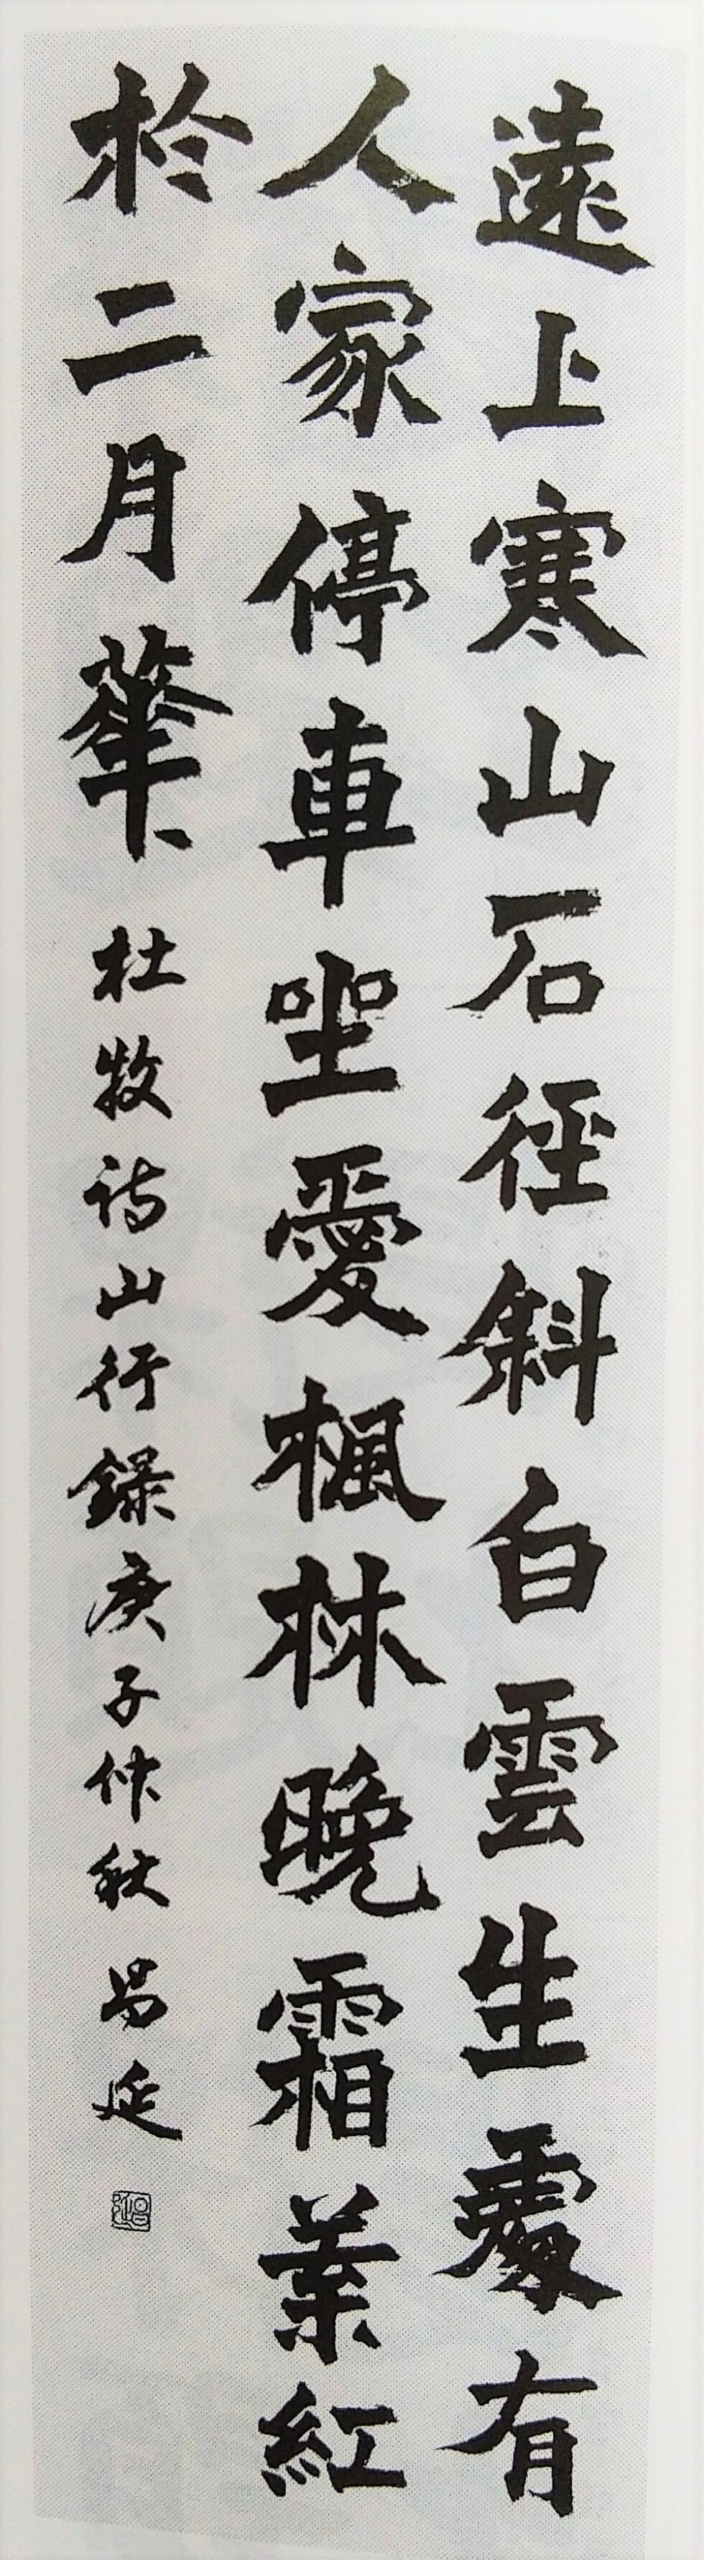 遠上寒山石徑斜白雲生處有
人家停車坐愛楓林晚霜葉紅
於二月華 杜牧诗山行錄庚子仲秋 昌延